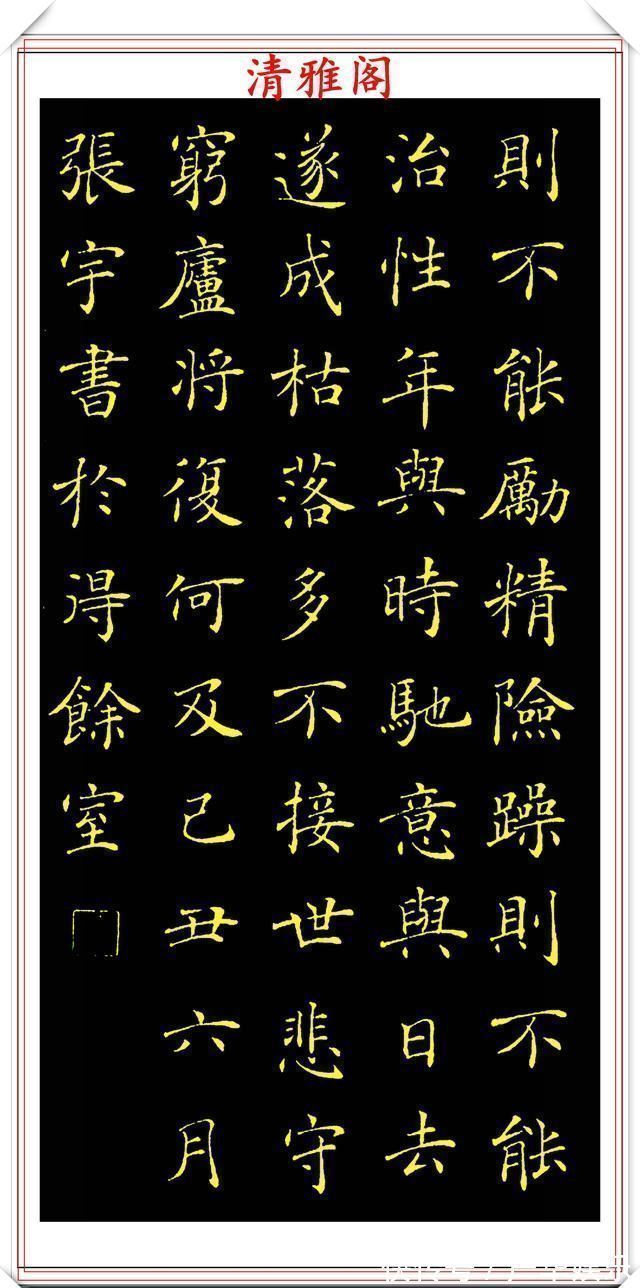 清雅阁
則不能勵精險躁則不能
治性年與時馳意與日去
遂成枯落多不接世悲守
窮廬將復何及己丑六月
張宇書於得餘室